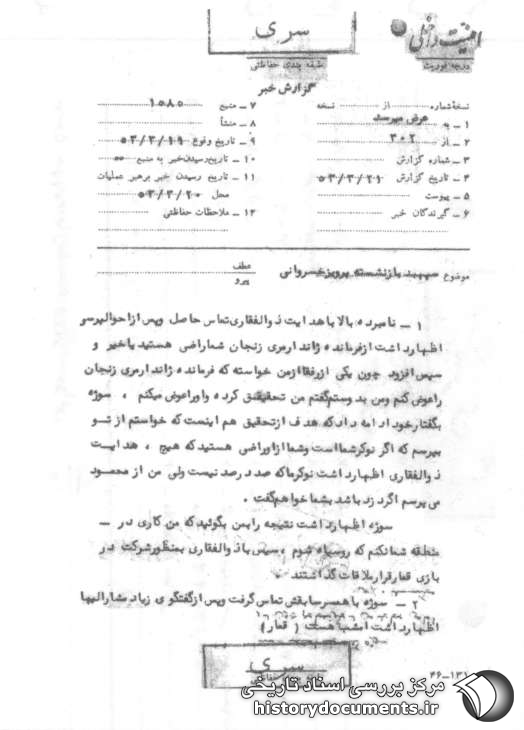 سری
امنیت داخلی
طبقه بندی حفاظتی
درجه فوریت
گزارش خبر
نسخه شماره از نسخه
۷ ـ منبع ۱۰۸۵
۱ ـ به عرض میرسد
۸ ـ منشأ
۲ ـ از ۳۰۲
۹ ـ تاریخ وقوع ۵۳/۳/۱۹
۳ ـ شماره گزارش
۱۰ ـ تاریخ رسیدن خبر به منبع
۴ ـ تاریخ گزارش ۵۳/۳/۲۱
۱۱ ـ تاریخ رسیدن خبر برهبر عملیات
۵ ـ پیوست
محل ۵۳/۳/۲۰
۶ ـ گیرندگان خبر
۱۲ ـ ملاحظات حفاظتی
موضوع سپهبد بازنشسته پرویز خسروانی
عطف
پیرو
۱ ـ نامبرده بالا با هدایت ذوالفقاری تماس حاصل و پس از احوالپرسی
اظهار داشت از فرمانده ژاندارمری زنجان شما راضی هستید یا خیر و
سپس افزود چون یکی از رفقا از من خواسته که فرمانده ژاندارمری زنجان
را عوض کنم و من بدوستم گفتم من تحقیق کرده و او را عوض میکنم ، سوژه
بگفتار خود ادامه داد که هدف از تحقیق هم اینست که خواستم از تو
بپرسم که اگر نوکر شما است و شما از او راضی هستید که هیچ ، هدایت
ذوالفقاری اظهار داشت نوکر ما که صد در صد نیست ولی من از محمود
می پرسم اگر دزد باشد بشما خواهم گفت .
سوژه اظهار داشت نتیجه را بمن بگوئید که من کاری در ـ
منطقه شما نکنم که روسیاه شوم ، سپس با ذوالفقاری بمنظور شرکت در
بازی قمار قرار ملاقات گذاشتند .
۲ ـ سوژه با همسر سابقش تماس گرفت و پس از گفتگوی زیاد مشارالیها
اظهار داشت امشب هست ( قمار )
سری
۴۶-۱۳۱
مرکز بررسی اسناد تاریخی
historydocuments.ir